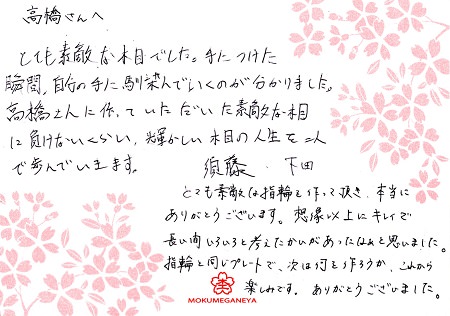 高橋さんへ
とても素敵な木目でした。手につけた
瞬間、自分の手に馴染んでいくのが分かりました。
高橋さんに作っていただいた素敵な木目
に負けないくらい、輝かしい木目の人生を二人
で歩んでいきます。
須藤・下田
とても素敵な指輪を作って頂き、本当に
ありがとうございます。想像以上にキレイで
長い間いろいろと考えたかいがあったなぁと思いました。
指輪と同じプレートで、次は何を作ろうか、これから
楽しみです。ありがとうございました。
MOKUMEGANEYA